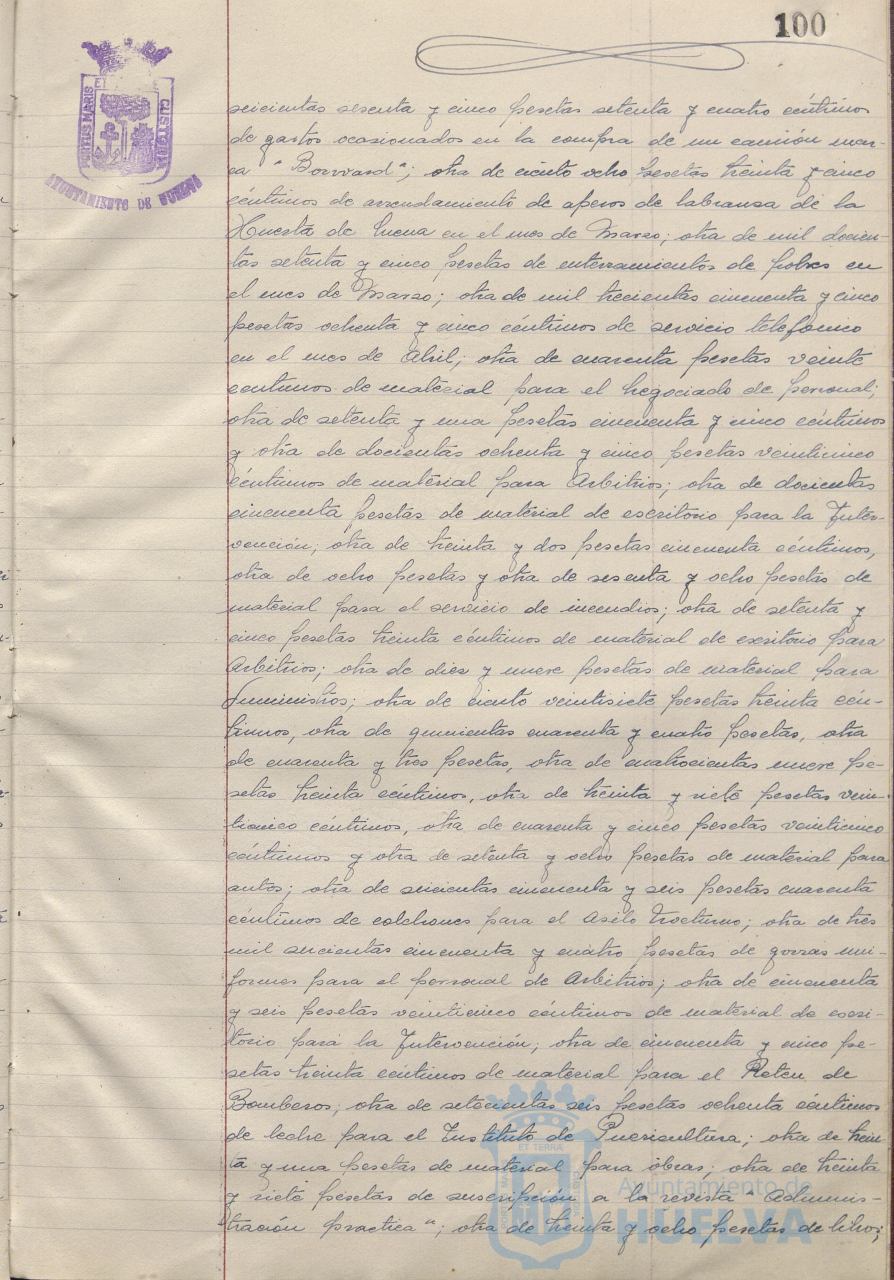 100
PORTUS MARIS
ET
CUSTODIA
AYUNTAMIENTO DE HUELVA
seicientas sesenta y cinco pesetas setenta y cuatro céntimos
de gastos ocasionados en la compra de un camión mar-
ca "Borward"; otra de ciento ocho pesetas treinta y cinco
céntimos de arrendamiento de aperos de labranza de la
Huerta de Lucena en el mes de Marzo; otra de mil docien-
tas setenta y cinco pesetas de enterramientos de pobres en
el mes de Marzo; otra de mil trecientas cincuenta y cinco
pesetas ochenta y cinco céntimos de servicio telefónico
en el mes de Abril; otra de cuarenta pesetas veinte
centimos de material para el Negociado de personal;
otra de setenta y una pesetas cincuenta y cinco céntimos
y otra de docientas ochenta y cinco pesetas veinticinco
céntimos de material para Arbitrios; otra de docientas
cincuenta pesetas de material de escritorio para la Inter-
vención; otra de treinta y dos pesetas cincuenta céntimos,
otra de ocho pesetas y otra de sesenta y ocho pesetas de
material para el servicio de incendios; otra de setenta y
cinco pesetas treinta céntimos de material de escritorio para
Arbitrios; otra de diez y nueve pesetas de material para
Suministros; otra de ciento veintisiete pesetas treinta cén-
timos, otra de quinientas cuarenta y cuatro pesetas, otra
de cuarenta y tres pesetas, otra de cuatrocientas nueve pe-
setas treinta céntimos, otra de treinta y siete pesetas vein-
ticinco céntimos, otra de cuarenta y cinco pesetas veinticinco
céntimos y otra de setenta y ocho pesetas de material para
autos; otra de seicientas cincuenta y seis pesetas cuarenta
céntimos de colchones para el Asilo Nocturno; otra de tres
mil seicientas cincuenta y cuatro pesetas de gorras uni-
formes para el personal de Arbitrios; otra de cincuenta
y seis pesetas veinticinco céntimos de material de escri-
torio para la Intervención; otra de cincuenta y cinco pe-
setas treinta céntimos de material para el Reten de
Bomberos; otra de setecientas seis pesetas ochenta céntimos
de leche para el Instituto de Puericultura; otra de trein
ta y una pesetas de material para obras; otra de treinta
y siete pesetas de suscripción a la revista "Adminis-
tración practica"; otra de treinta y ocho pesetas de libros;
ET TERRA
Ayuntamiento de
HUELVA